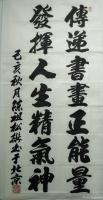 傳遞書畫正能量
發揮人生精氣神
己亥秋月陈祖松與书于北京